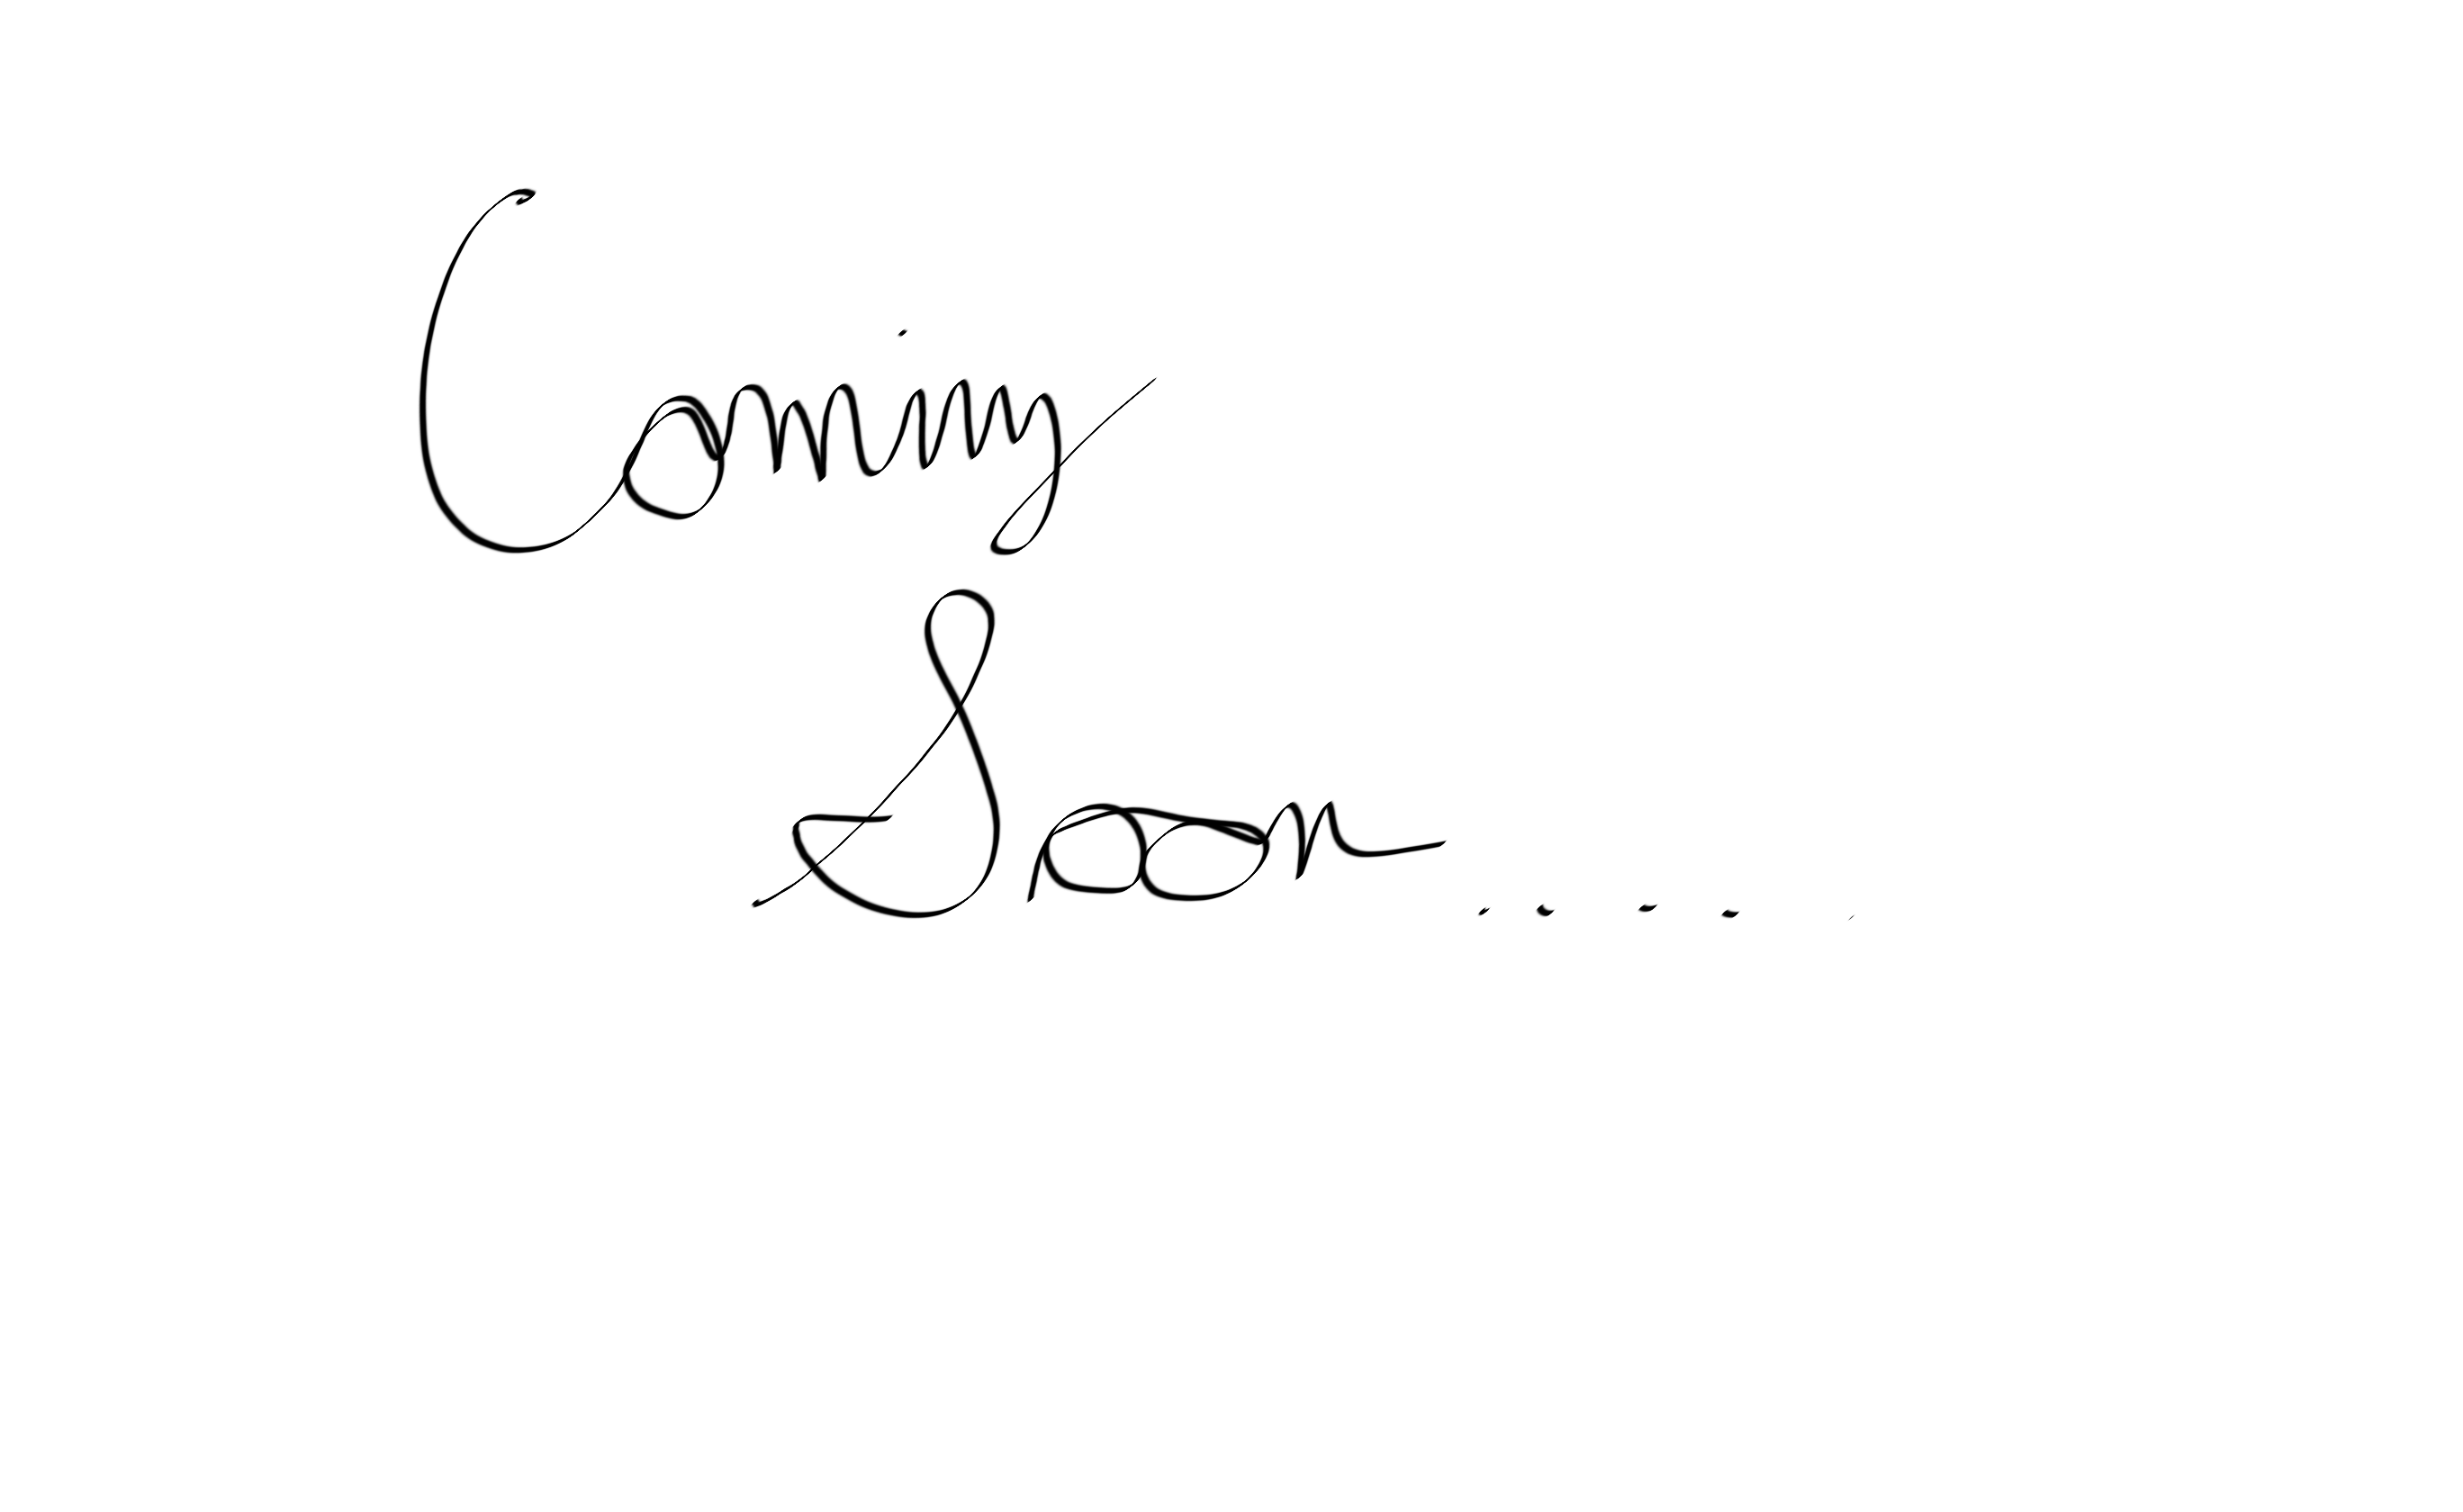 Coming
Soon.....